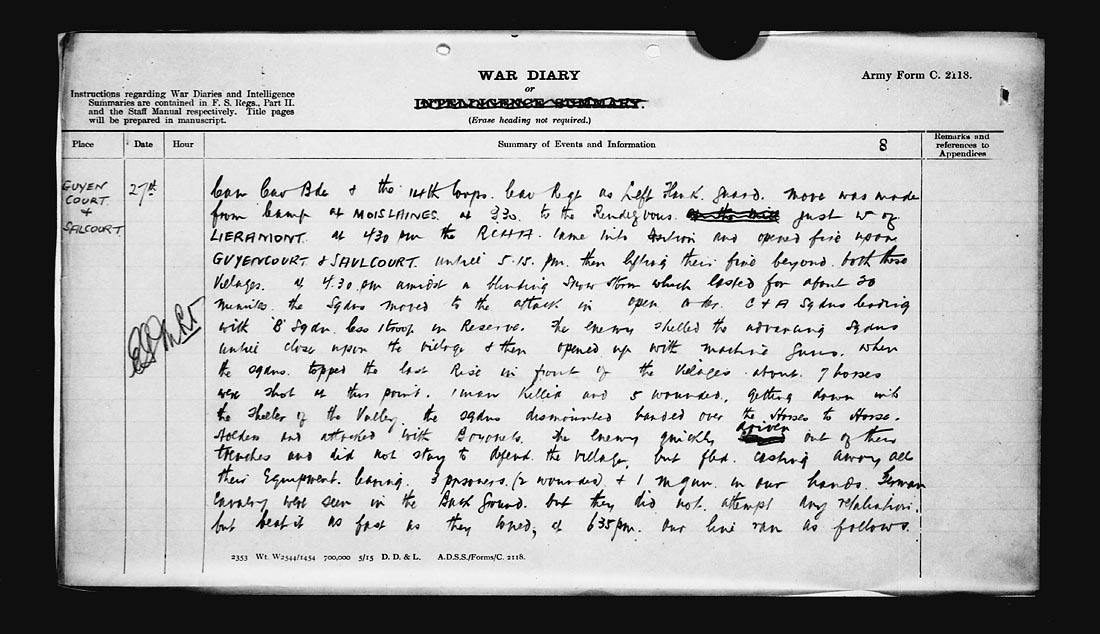 WAR DIARY
or
INTELLIGENCE SUMMARY.
(Erase heading not required.)
Army Form C. 2118.
Instructions regarding War Diaries and Intelligence
Summaries are contained in F. S. Regs., Part II.
and the Staff Manual respectively. Title pages
will be prepared in manuscript.
Place
Date
Hour
Summary of Events and Information
8
Remarks and
references to
Appendices
GUYEN
COURT.
&
SALCOURT
27th
Can Cav Bde & the 14th Corps. Cav Regt as Left Flank guard. Move was made
from Camp at MOISLAINES. at 3.30. to the Rendezvous just W of
LIERAMONT. at 430 pm the RCHA. came into Action and opened fire upon
GUYENCOURT & SAULCOURT. until 5.15. pm. then lifting their fire beyond both these
Villages. at 4.30. pm amidst a blinding Snow Storm which lasted for about 20
minutes the Sqdns moved to the attack in open order. C & A Sqdns leading
with 'B' Sqdn. less 1 troop in Reserve. The enemy shelled the advancing Sqdns
until close upon the village & then opened up with machine Guns. when
the sqdns. topped the last Rise in front of the Villages about. 7 horses
were shot at this point. 1 man Killed and 5 wounded, getting down into
the shelter of the Valley. the sqdns dismounted handed over the Horses to Horse.
holders and attacked with Bayonets. The Enemy quickly driven out of their
trenches and did not stay to defend the village, but fled. casting away all
their Equipment. leaving. 3 prisoners. (2 wounded) & 1 m gun. in our hands. German
Cavalry were seen in the Back Ground. but they did not. attempt any retaliation.
but beat it as fast as they could, at 635 pm. our line ran as follows.
2353 Wt. W2544/1454 700,000 5/15 D. D. & L. A.D.S.S./Forms/C. 2118.